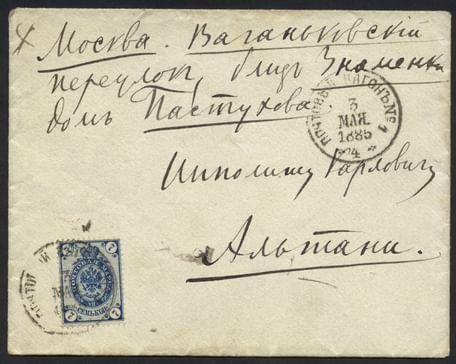 Москва. Ваганьковскій
переулок, близъ Знаменки
домъ Пастухова.
ПОЧТОВЫЙ ВАГОНЪ № 1
3
МАЯ.
1885
Ипполиту Карловичу
Альтани.
7 7
СЕМЬ КОП.